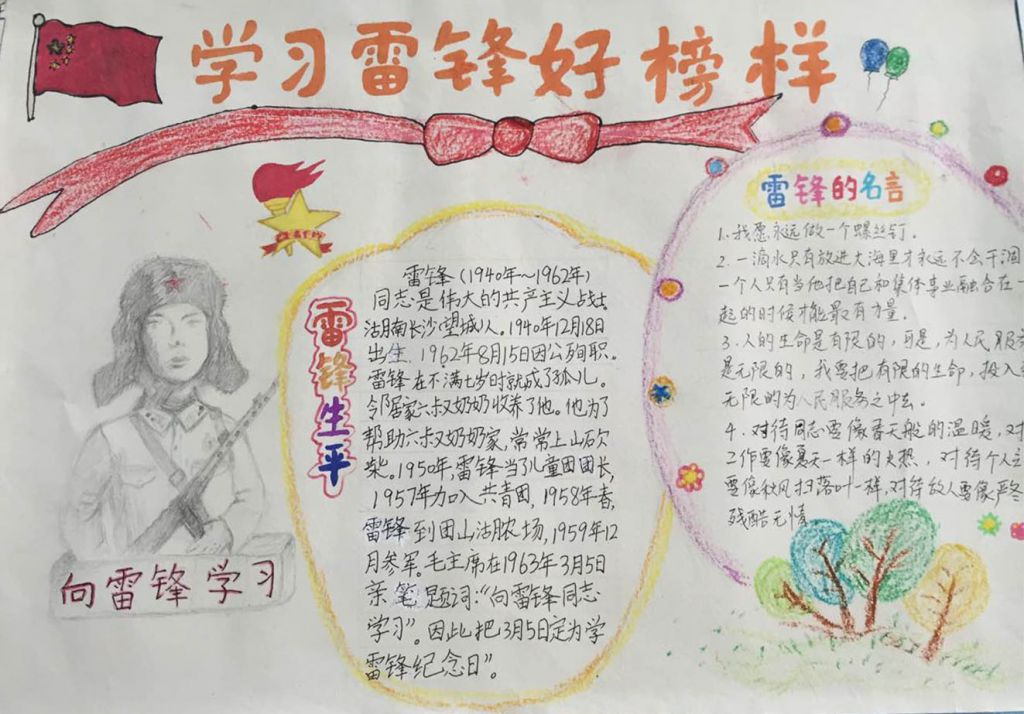 学习雷锋好榜样
雷锋生平
雷锋（1940年~1962年）
同志是伟大的共产主义战士
沽月南长沙望城人。1940年12月18日
出生，1962年8月15日因公殉职。
雷锋在不满七岁时就成了孤儿。
邻居家六叔奶奶收养了他。他为了
帮助六叔奶奶家，常常上山砍
柴。1950年，雷锋当了儿童团团长，
1957年加入共青团，1958年春，
雷锋到团山沽脓场，1959年12
月参军。毛主席在1963年3月5日
亲笔题词：“向雷锋同志
学习”。因此把3月5日定为学
雷锋纪念日”。
向雷锋学习
雷锋的名言
1、我愿永远做一个螺丝钉。
2．一滴水只有放进大海里才永远不会干涸
一个人只有当他把自己和集体事业融合在一
起的时候才能最有力量．
3．人的生命是有限的，可是，为人民服务
是无限的，我要把有限的生命，投入到
无限的为人民服务之中去。
4．对待同志要像春天般的温暖，对
工作要像夏天一样的火热，对待个人主
要像秋风扫落叶一样，对待敌人要像严冬
残酷无情